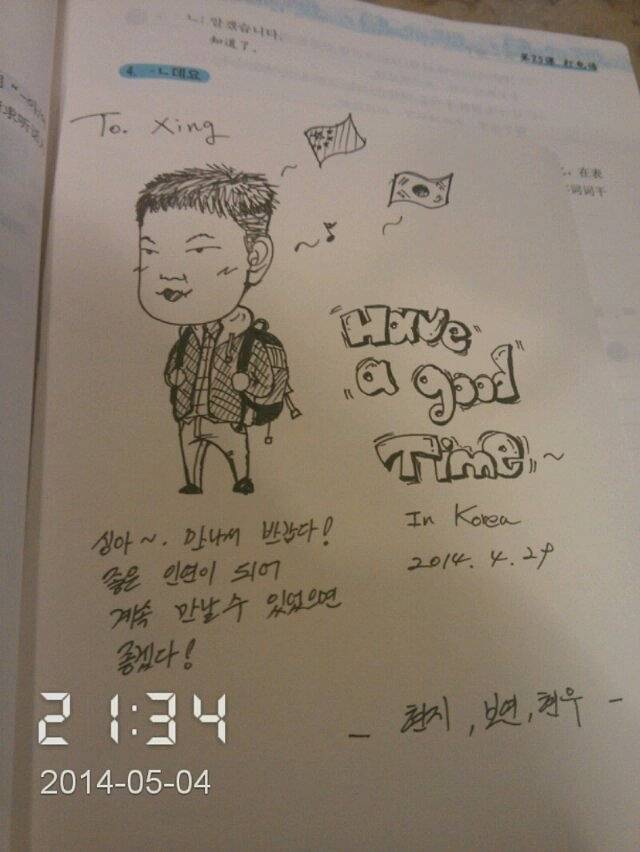 ㄴ: 알겠습니다.
知道了。
第25课 打电话
4. -ㄴ데요
在表
词词干
To. Xing
Have
a good
Time ~
In Korea
2014. 4. 29
싱아~. 만나서 반갑다!
좋은 인연이 되어
계속 만날 수 있었으면
좋겠다!
- 현지, 보연, 현우 -
21:34
2014-05-04